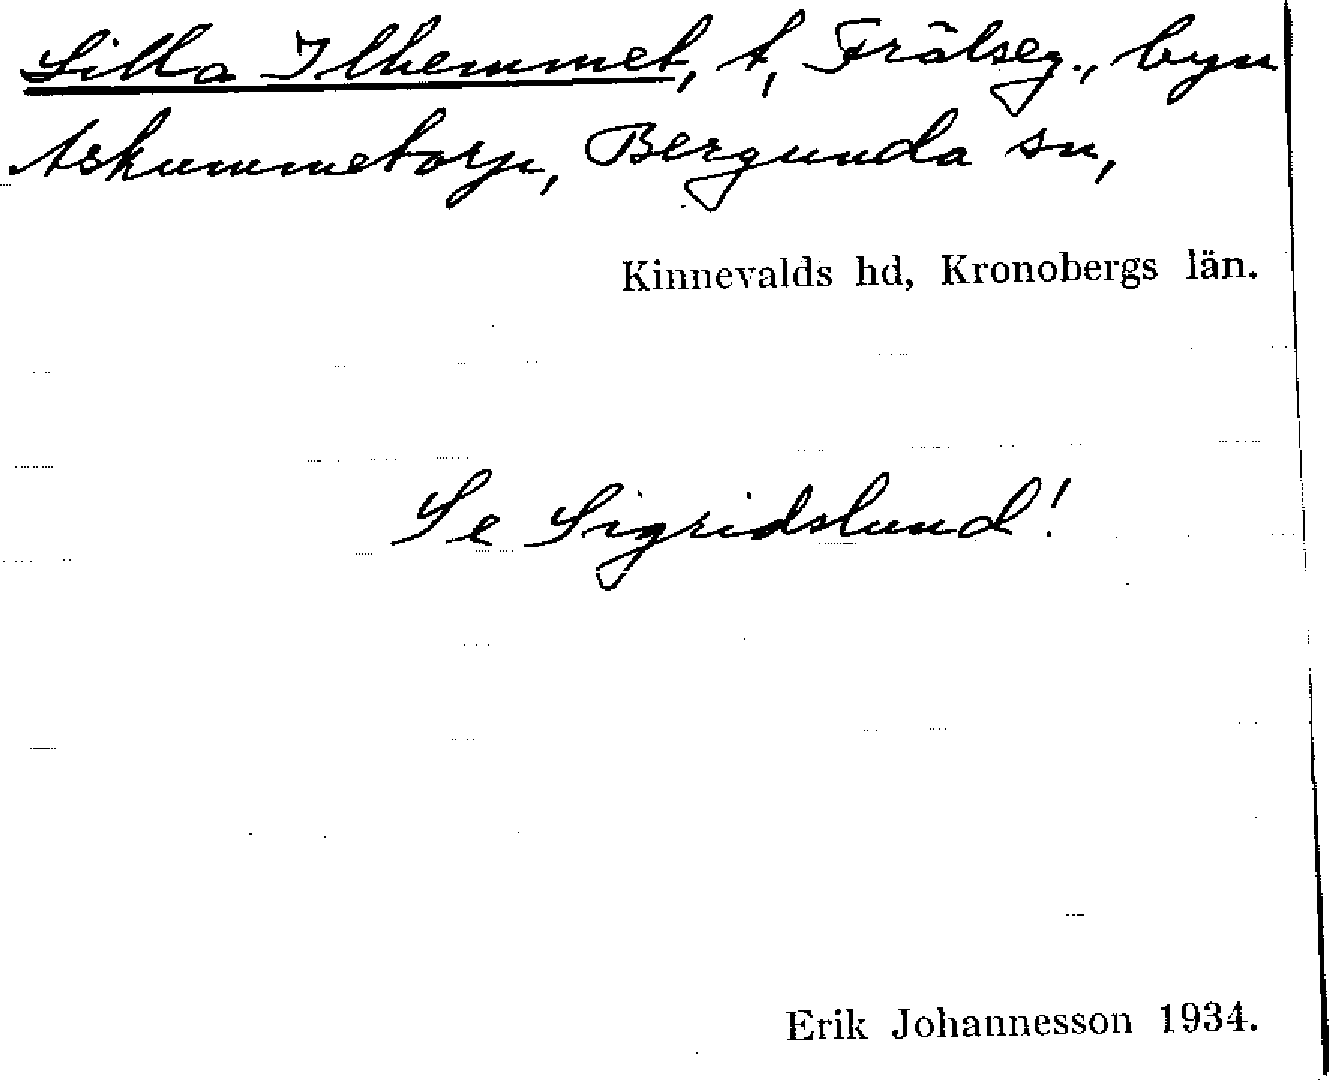 Lilla Ilhemmet, t, Frälseg., byn
Askummetorp, Bergunda sn,
Kinnevalds hd, Kronobergs län.
Se Sigridslund!
Erik Johannesson 1934.